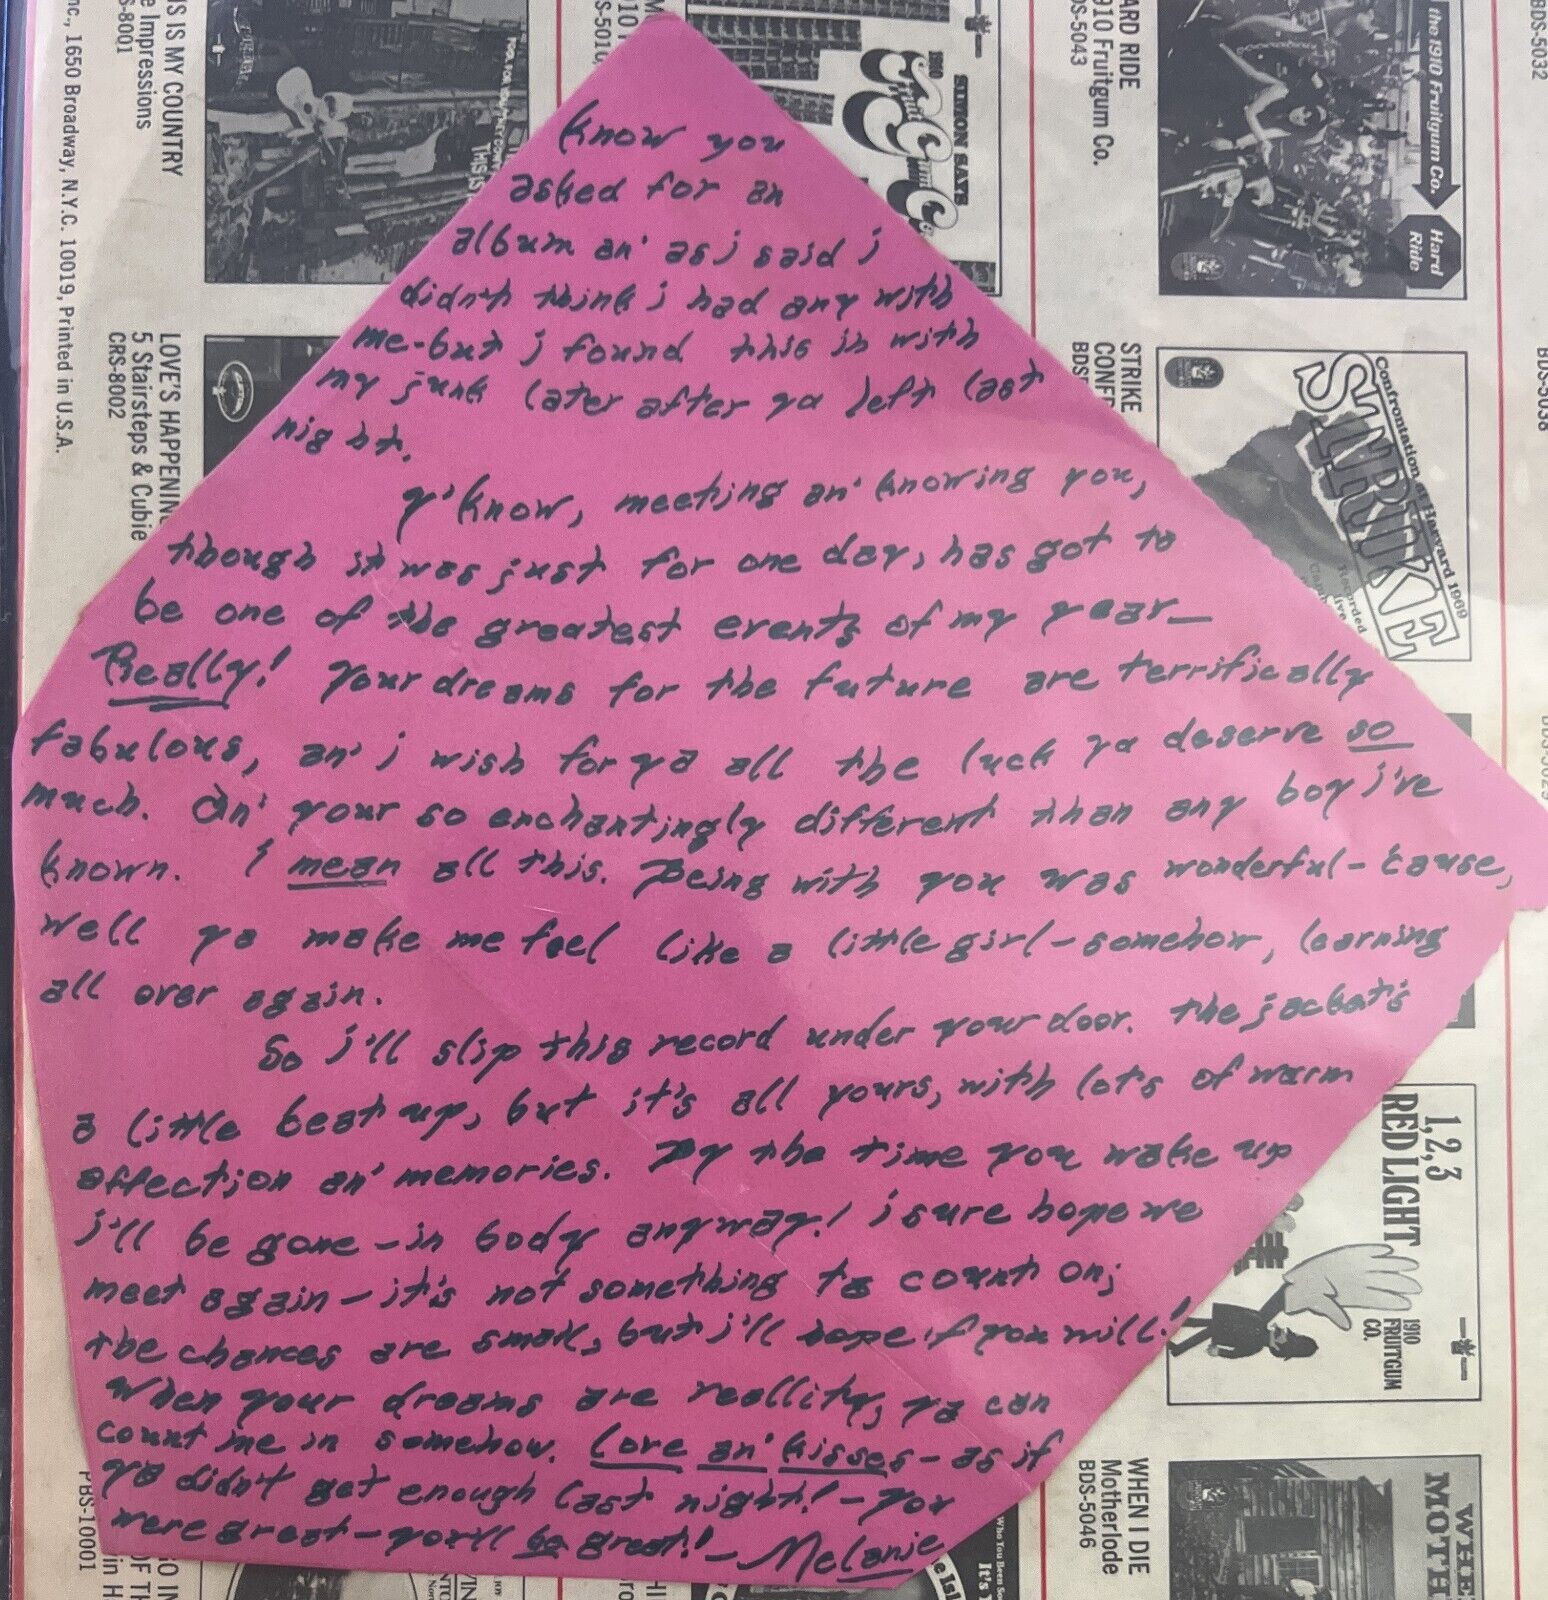 know you
asked for an
album an' as i said i
didn't think i had any with
me-but i found this in with
my junk later after ya left last
night.
y'know, meeting an' knowing you,
though it was just for one day, has got to
be one of the greatest events of my year—
Really! Your dreams for the future are terrifically
fabulous, an' i wish for ya all the luck ya deserve so
much. An' your so enchantingly different than any boy i've
known. I mean all this. Being with you was wonderful-'cause,
well ya make me feel like a little girl-somehow, learning
all over again.
So i'll slip this record under your door. the jacket's
a little beat up, but it's all yours, with lots of warm
affection an' memories. By the time you wake up
i'll be gone-in body anyway! i sure hope we
meet again-it's not something to count on;
the chances are small, but i'll hope if you will!
When your dreams are reallity, ya can
count me in somehow. Love an' kisses-as if
ya didn't get enough last night!-you
were great-you'll be great!-Melanie
nc., 1650 Broadway, N.Y.C. 10019, Printed in U.S.A.
IS IS MY COUNTRY
e Impressions
S-8001
LOVE'S HAPPENING
5 Stairsteps & Cubie
CRS-8002
PBS-10001
S-5010
1910
SIMON SAYS
ARD RIDE
910 Fruitgum Co.
DS-5043
the 1910 Fruitgum Co.
Hard
Ride
STRIKE
CONF
BDS
Confrontation at Harvard 1969
STRIKE
1,2,3
RED LIGHT
1910
FRUITGUM
CO.
WHEN I DIE
Motherlode
BDS-5046
WHE
MOTH
BDS-5032
BDS-5038
BDS-5029